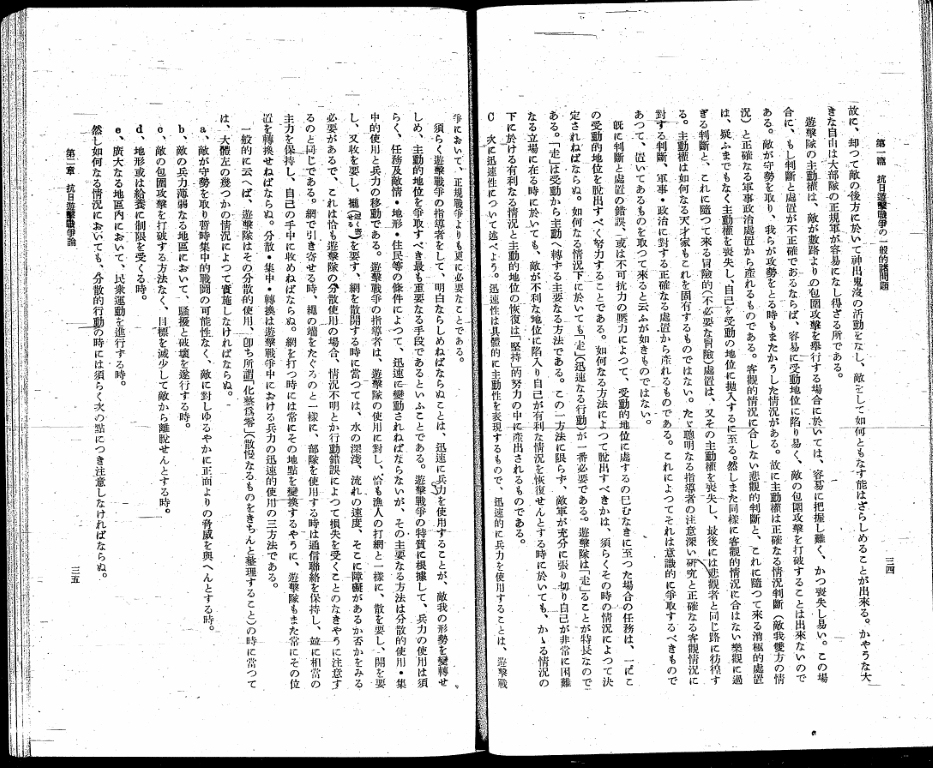 第一篇 抗日遊擊戰爭の一般的諸問題
三四
故に、却つて敵の後方に於いて神出鬼沒の活動をなし、敵をして如何ともなす能はざらしめることが出來る。かやうな大
きな自由は大部隊の正規軍が容易になし得ざる所である。
遊擊隊の主動權は、敵が數路よりの包圍攻擊を擧行する場合に於いては、容易に把握し難く、かつ喪失し易い。この場
合に、もし判斷と處置が不正確でおるならば、容易に受動地位に陷り易く、敵の包圍攻擊を打破することは出來ないので
ある。敵が守勢を取り、我らが攻勢をとる時もまたかうした情況がある。故に主動權は正確なる情況判斷(敵我雙方の情
況)と正確なる軍事政治處置から產れるものである。客觀的情況に合しない悲觀的判斷と、これに隨つて來る消極的處置
は、疑ふまでもなく主動權を喪失し、自己を受動の地位に拋入するに至る。然しまた同樣に客觀的情況に合はない樂觀に過
ぎる判斷と、これに隨つて來る冒險的(不必要な冒險)處置は、又その主動權を喪失し、最後には悲觀者と同じ路に彷徨す
る。主動權は如何なる天才家もこれを固有するものではない。たゞ聰明なる指導者の注意深い硏究と正確なる客觀情況に
對する判斷、軍事・政治に對する正確なる處置から產れるものである。これによつてそれは意識的に爭取するべきもので
あつて、置いてあるものを取つて來ると云ふが如きものではない。
既に判斷と處置の錯誤、或は不可抗力の壓力によつて、受動的地位に處するの已むなきに至つた場合の任務は、一にこ
の受動的地位を脫出すべく努力することである。如何なる方法によつて脫出すべきかは、須らくその時の情況によつて決
定されねばならぬ。如何なる情況下に於いても「走」(迅速なる行動)が一番必要である。遊擊隊は「走」ることが特長なので
ある。「走」は受動から主動へ轉する主要なる方法である。この一方法に限らず、敵軍が充分に張り切り自己が非常に困難
なる立場に在る時に於いても、敵が不利な地位に陷入り自己が有利な情況を恢復せんとする時に於いても、かゝる情況の
下に於ける有利なる情況と主動的地位の恢復は「堅持」的努力の中に產出されるものである。
C 次に迅速性について述べよう。迅速性は具體的に主動性を表現するもので、迅速的に兵力を使用することは、遊擊戰
爭において、正規戰爭よりも更に必要なことである。
須らく遊擊戰爭の指導者をして、明白ならしめねばならぬことは、迅速に兵力を使用することが、敵我の形勢を變轉せ
しめ、主動的地位を爭取すべき最も重要なる手段であるといふことである。遊擊戰爭の特質に根據して、兵力の使用は須
らく、任務及敵情・地形・住民等の條件によつて、迅速に變動されねばならないが、その主要なる方法は分散的使用・集
中的使用と兵力の移動である。遊擊戰爭の指導者は、遊擊隊の使用に對し、恰も漁人の打網と一樣に、散を要し、開を要
し、又收を要し、を要す、網を散開する時に當つては、水の深淺、流れの速度、そこに障礙があるか否かをみる
必要があるので、これは恰も遊擊隊の分散的使用の場合、情況不明とか行動錯誤によつて損失を受くことのなきやうに注意す
るのと同じである。網で引き寄せる時、繩の端をたぐるのと一樣に、部隊を使用する時は通信聯絡を保持し、竝に相當の
主力を保持し、自己の手中に收めねばならぬ。網を打つ時には常にその地點を變換するやうに、遊擊隊もまた常にその位
置を轉換せねばならぬ。分散・集中・轉換は遊擊戰爭中における兵力の迅速的使用の三方法である。
一般的に云へば、遊擊隊はその分散的使用、卽ち所謂「化整爲零」(散慢なるものをきちんと整理すること)の時に當つて
は、大體左の幾つかの情況によつて實施しなければならぬ。
a、敵が守勢を取り暫時集中的戰鬪の可能性なく、敵に對しゆるやかに正面よりの脅威を與へんとする時。
b、敵の兵力薄弱なる地區において、騷擾と破壞を遂行する時。
c、敵の包圍攻擊を打破する方法なく、目標を減少して敵から離脫せんとする時。
d、地形或は給養に制限を受くる時。
e、廣大なる地區內において、民衆運動を進行する時。
然し如何なる情況においても、分散的行動の時には須らく次の點につき注意しなければならぬ。
第二章 抗日遊擊戰爭論
三五